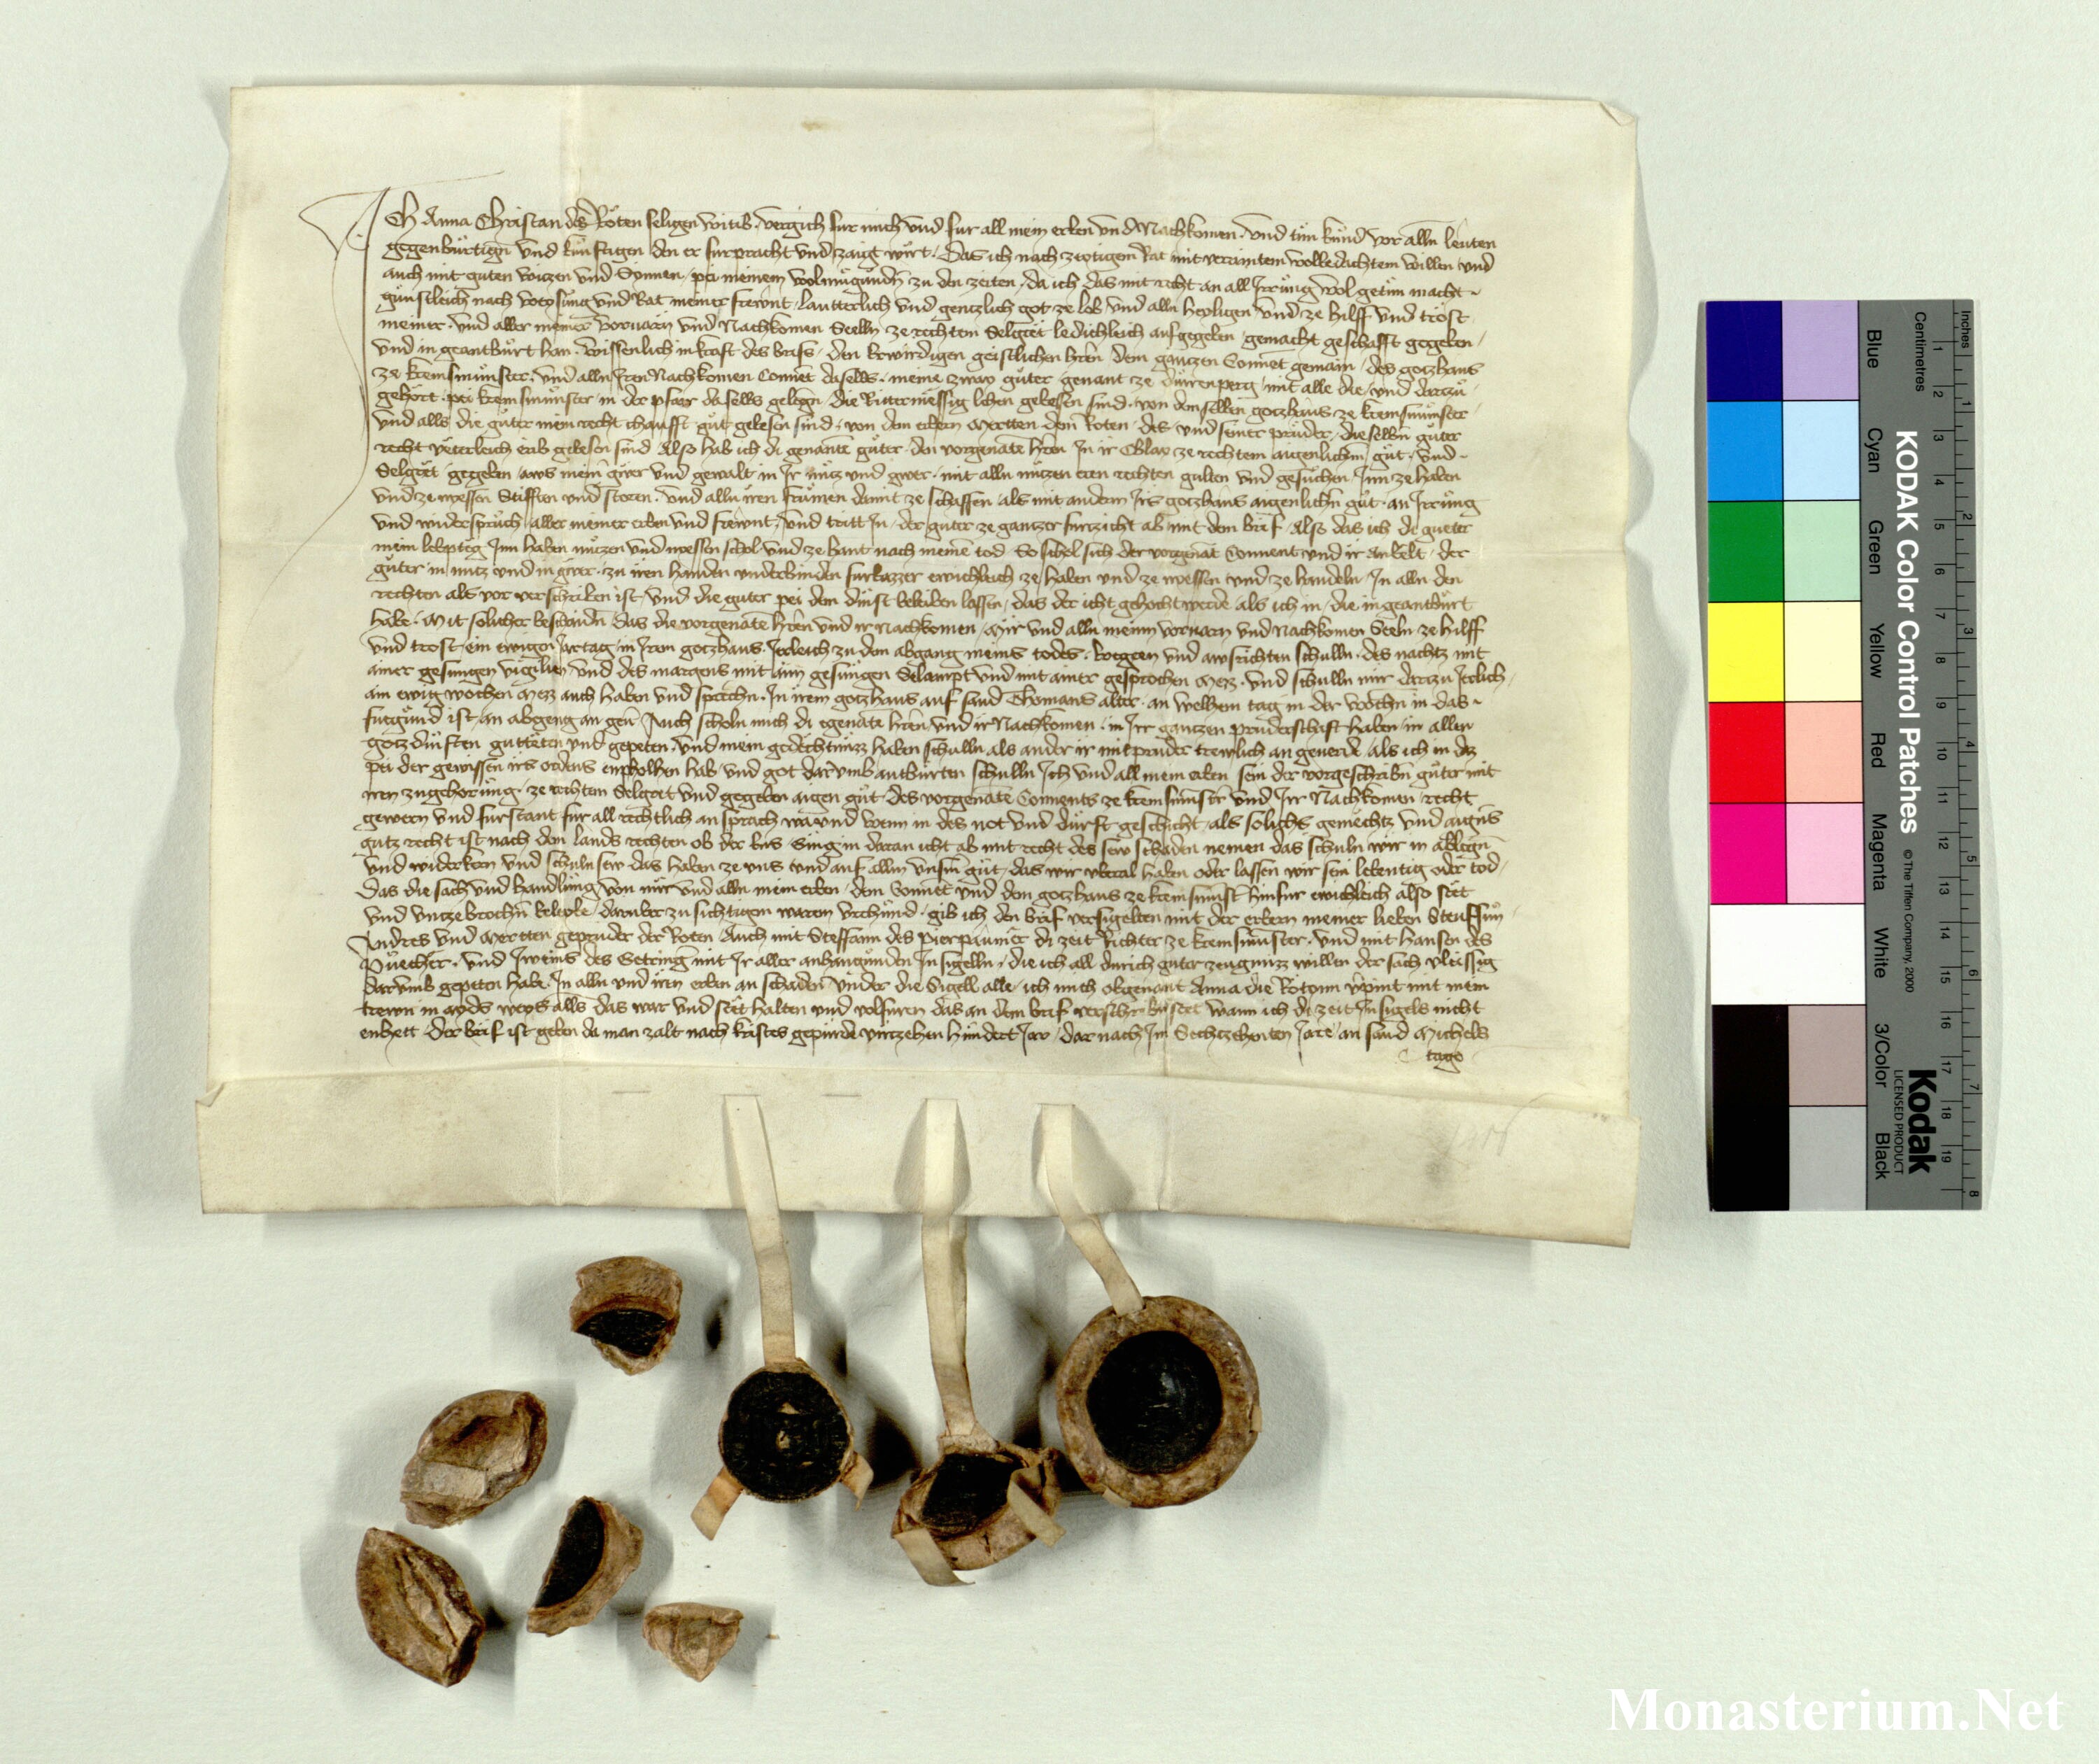 Ich Anna Christan des Roten seligen witib vergich fur mich und fur all mein erben und Nachkomen und tun kund vor alln leuten
gegenburtign und kunftigen den er furpracht und zaigt wirt. Das ich nach zeitigem Rat mit veraintem wolledachtem willen und
auch mit guten wizen und Synnen pei meinem wolmugunden zu den zeiten da ich das mit recht an all Irrung wol getun macht
gunstleich nach und Rat meiner frewnt lautterlich und genczlich got ze lob und alln heyligen und ze hilff und trost
meiner und aller meiner vorvarn und Nachkomen Seelln ze rechtem Selgret ledichleich aufgegeben gemacht geschafft gegeben
und in geantburt han wissenlich in kraft des brifs den Erwirdigen geistlichen hren dem ganczen Convent gemain des gotzhaus
ze kremsmunster und alln Iren Nachkomen Convent daselbs meine zway guter genant ze Durrenperg mit alle die und darczu
gehort pei kremsmunster in der pfarr daselbs gelegn die Rittermessig lehen gebesen sind von demselben gotzhaus ze kremsmunster
und alls die guter mein recht chaufft gut gebesen sind von dem erbern Mertten dem Roten des und seiner pruder dieselbn guter
recht veterleich erib gebesen sind Also hab ich di genante guter den vorgenante hren In ir Oblay ze rechtem aigenlichm gut und
Selgret gegeben aws mein gwer und gewalt in Ir nutz und gwer mit alln nutzen eren rechten gulten und gesuchen Inn ze haben
und ze niessen Stifften und storen und alln iren frumen damit ze schaffen als mit anderm Irs gotzhaus aigenlichn gut an Irrung
und widerspruch aller meiner erben und frewnt und tritt In der guter ze ganczer furzicht ab mit dem brif Also das ich di gueter
mein lebpteg Inn haben nutzen und niessen schol und ze hant nach meine tod So schol sich der vorgenat Convent und ir anbelt der
guter in nutz und in gwer zu iren handen underbinden furbazzer ewichleich ze haben und ze niessen und ze handeln In alln den
rechten als vor verschriben ist und die guter pei dem dinst beleiben lassen das der icht gehocht werde als ich in die ingeantburt
habe Mit solicher beschaidn Das die vorgenate hren und ir Nachkomen mir und alln meinn vorvarn und Nachkomen Seeln ze hilff
und trost ein ewigen Jartag in Irem gotzhaus Jerleich zu dem abgang meins todes begeen und awsrichten schulln des nachtz mit
ainer gesungen vigilien und des margens mit aim gesungen Selampt und mit ainer gesprochen Mez und schulln mir darczu Jerlich
ain ewig wochen Mez auch haben und sprechn In irem gotzhaus auf sand Thomans alter an welhem tag in der wochn in das
fuegund ist an abgeng an ger Auch scholn mich di egenate hren und ir Nachkomen in Irr ganczen pruderschaft haben in allen
gotzdinsten gutteten und gepeten und mein gedechtnuzz haben schulln als ander ir mitpruder trewlich an geverde als ich in dez
pei der gewissen irs ordens enpholhen hab und got darumb antburten schulln Ich und all mein erben sein der vorgeschribn guter mit
iren zugehorung ze rechtem Selgret und gegeben aigen gut des vorgenate Convents ze kremsmunster und Irr Nachkomen recht
gewern und furstant fur all rechtlich ansprach wa und wenn in des not und durft geschicht als solichs gemechtz und aigens
gutz recht ist nach den lands rechten ob der Ens Ging in daran icht ab mit recht des sew schaden nemen das schuln wir in ablegn
und widerkern und schuln sew das haben ze uns und auf allm unserm gut das wir uberal haben oder lassen wir sein lebentig oder tod
Das die sach und handlung von mir und alln mein erben dem Convent und dem gotzhaus ze kremsmunster hinfur ewichleich also stet
und unzebrochn beleibe daruber zu sichtigem warem urchund gib ich den brif versigelten mit der erbern meiner lieben Steufsun
Andres und Mertten gepruder der Roten Auch mit Steffann des Pierpaumer di zeit Richter ze kremsmunster und mit Hansen des
Puecher und Iweins des Getring mit Ir aller anhangunden Insigelln die ich all durich guter zeugnuzz willen der sach vleissig
darumb gepeten habe In alln und iren erben an schaden Under die Sigell alle ich mich obgenant Anna die Rotinn verpint mit mein
trewn in ayds weys alls das war und stet halten und volfuren das an dem brif verschriben stet wann ich di zeit Insigels nicht
enhett Der brif ist geben da man zalt nach kristes gepurde virczehen hundert Jar dar nach Im Sechtzehenten Jare an sand Michels
tage
1416
KODAK Color Control Patches
© The Tiffen Company, 2000
Kodak
LICENSED PRODUCT
Inches
Centimetres
Blue
Cyan
Green
Yellow
Red
Magenta
White
3/Color
Black
1 2 3 4 5 6 7 8
1 2 3 4 5 6 7 8 9 10 11 12 13 14 15 16 17 18 19
Monasterium.Net